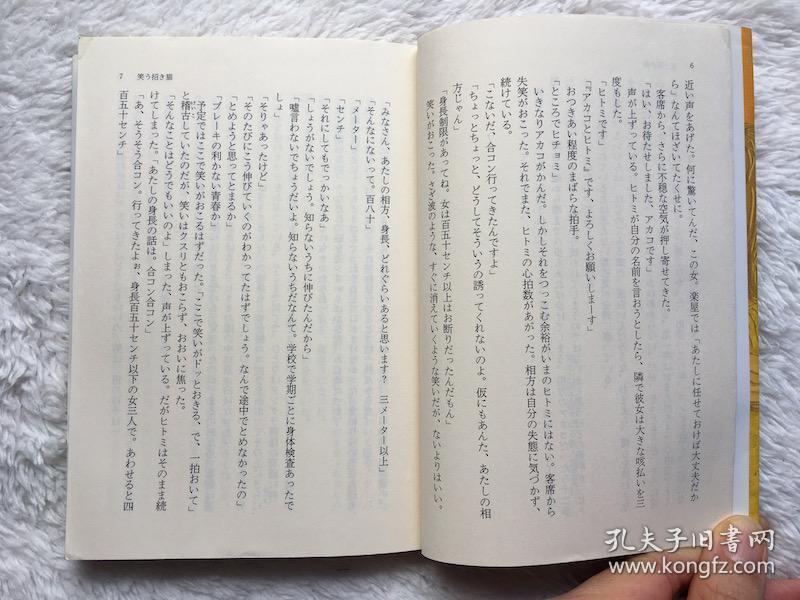 6
近い声をあげた。何に驚いてんだ、この女。楽屋では「あたしに任せておけば大丈夫だか
ら」なんてほざいてたくせに。
客席から、さらに不穏な空気が押し寄せてきた。
「はい、お待たせしました、アカコです」
声が上ずっている。ヒトミが自分の名前を言おうとしたら、隣で彼女は大きな咳払いを三
度もした。
「ヒトミです」
「『アカコとヒトミ』です、よろしくお願いしまーす」
おつきあい程度のまばらな拍手。
「ところでヒチョミ」
いきなりアカコがかんだ。しかしそれをつっこむ余裕がいまのヒトミにはない。客席から
失笑がおこった。それでまた、ヒトミの心拍数があがった。相方は自分の失態に気づかず、
続けている。
「こないだ、合コン行ってきたんですよ」
「ちょっとちょっと、どうしてそういうの誘ってくれないのよ。仮にもあんた、あたしの相
方じゃん」
「身長制限があってね。女は百五十センチ以上はお断りだったんだもん」
笑いがおこった。さざ波のような、すぐに消えていくような笑いだが、ないよりはいい。
7 笑う招き猫
「みなさん、あたしの相方、身長、どれぐらいあると思います? 三メーター以上」
「そんなにないって。百八十」
「メーター」
「センチ」
「それにしてもでっかいなあ」
「しょうがないでしょう。知らないうちに伸びたんだから」
「嘘言わないでちょうだいよ。知らないうちだなんて。学校で学期ごとに身体検査あったで
しょ」
「そりゃあったけど」
「そのたびにこう伸びていくのがわかってたはずでしょう。なんで途中でとめなかったの」
「とめようと思ってとまるか」
「ブレーキの利かない青春か」
予定ではここで笑いがおこるはずだった。「ここで笑いがドッとおきる、で、一拍おいて」
と稽古していたのだが、笑いはクスリともおこらず、おおいに焦った。
「そんなことはどうでもいいのよ」しまった、声が上ずっている。だがヒトミはそのまま続
けてしまった。「あたしの身長の話は。合コン合コン」
「あ、そうそう合コン。行ってきたよぉ、身長百五十センチ以下の女三人で。あわせると四
百五十センチ」
孔夫子旧书网
www.kongfz.com